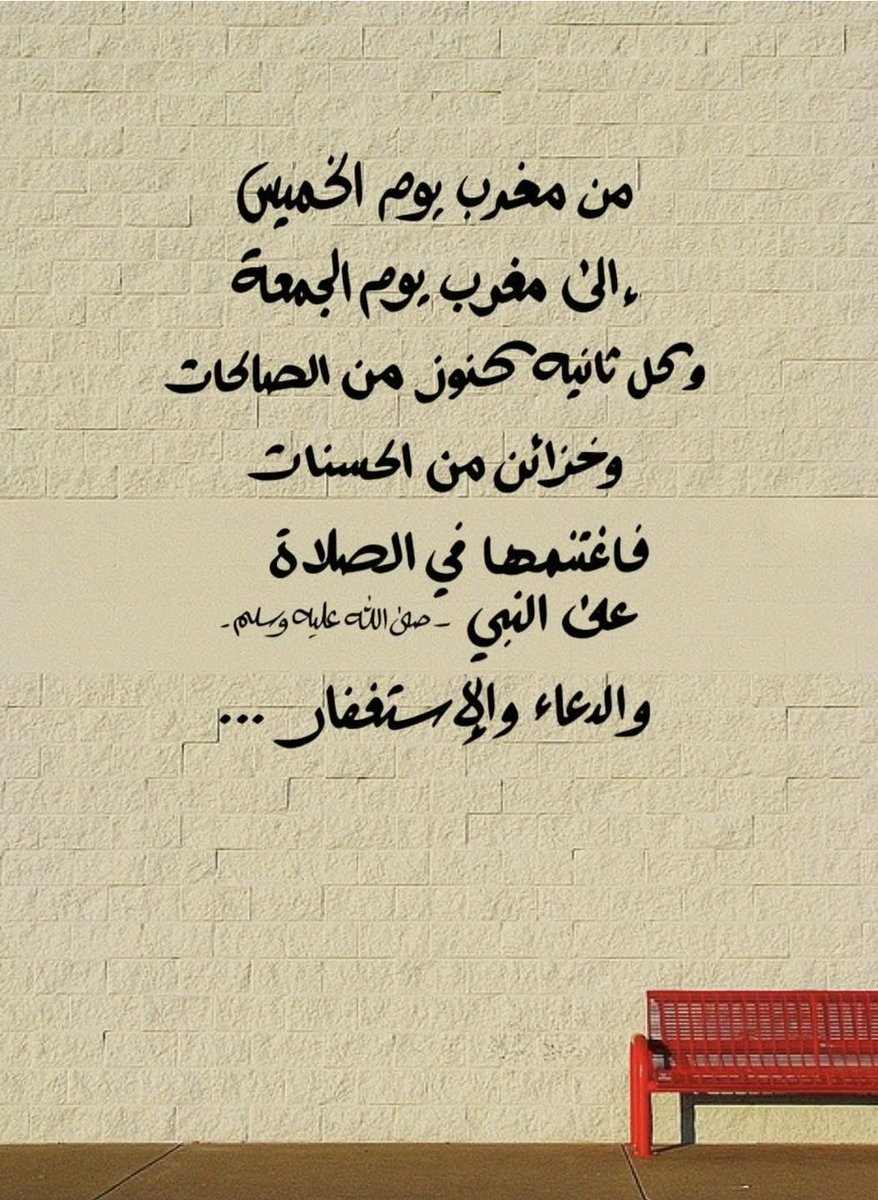 من مغرب يوم الخميس
إلى مغرب يوم الجمعة
وكل ثانيه كنوز من الصالحات
وخزائن من الحسنات
فاغتنمها في الصلاة
على النبي - صلى الله عليه وسلم -
والدعاء والإستغفار ...